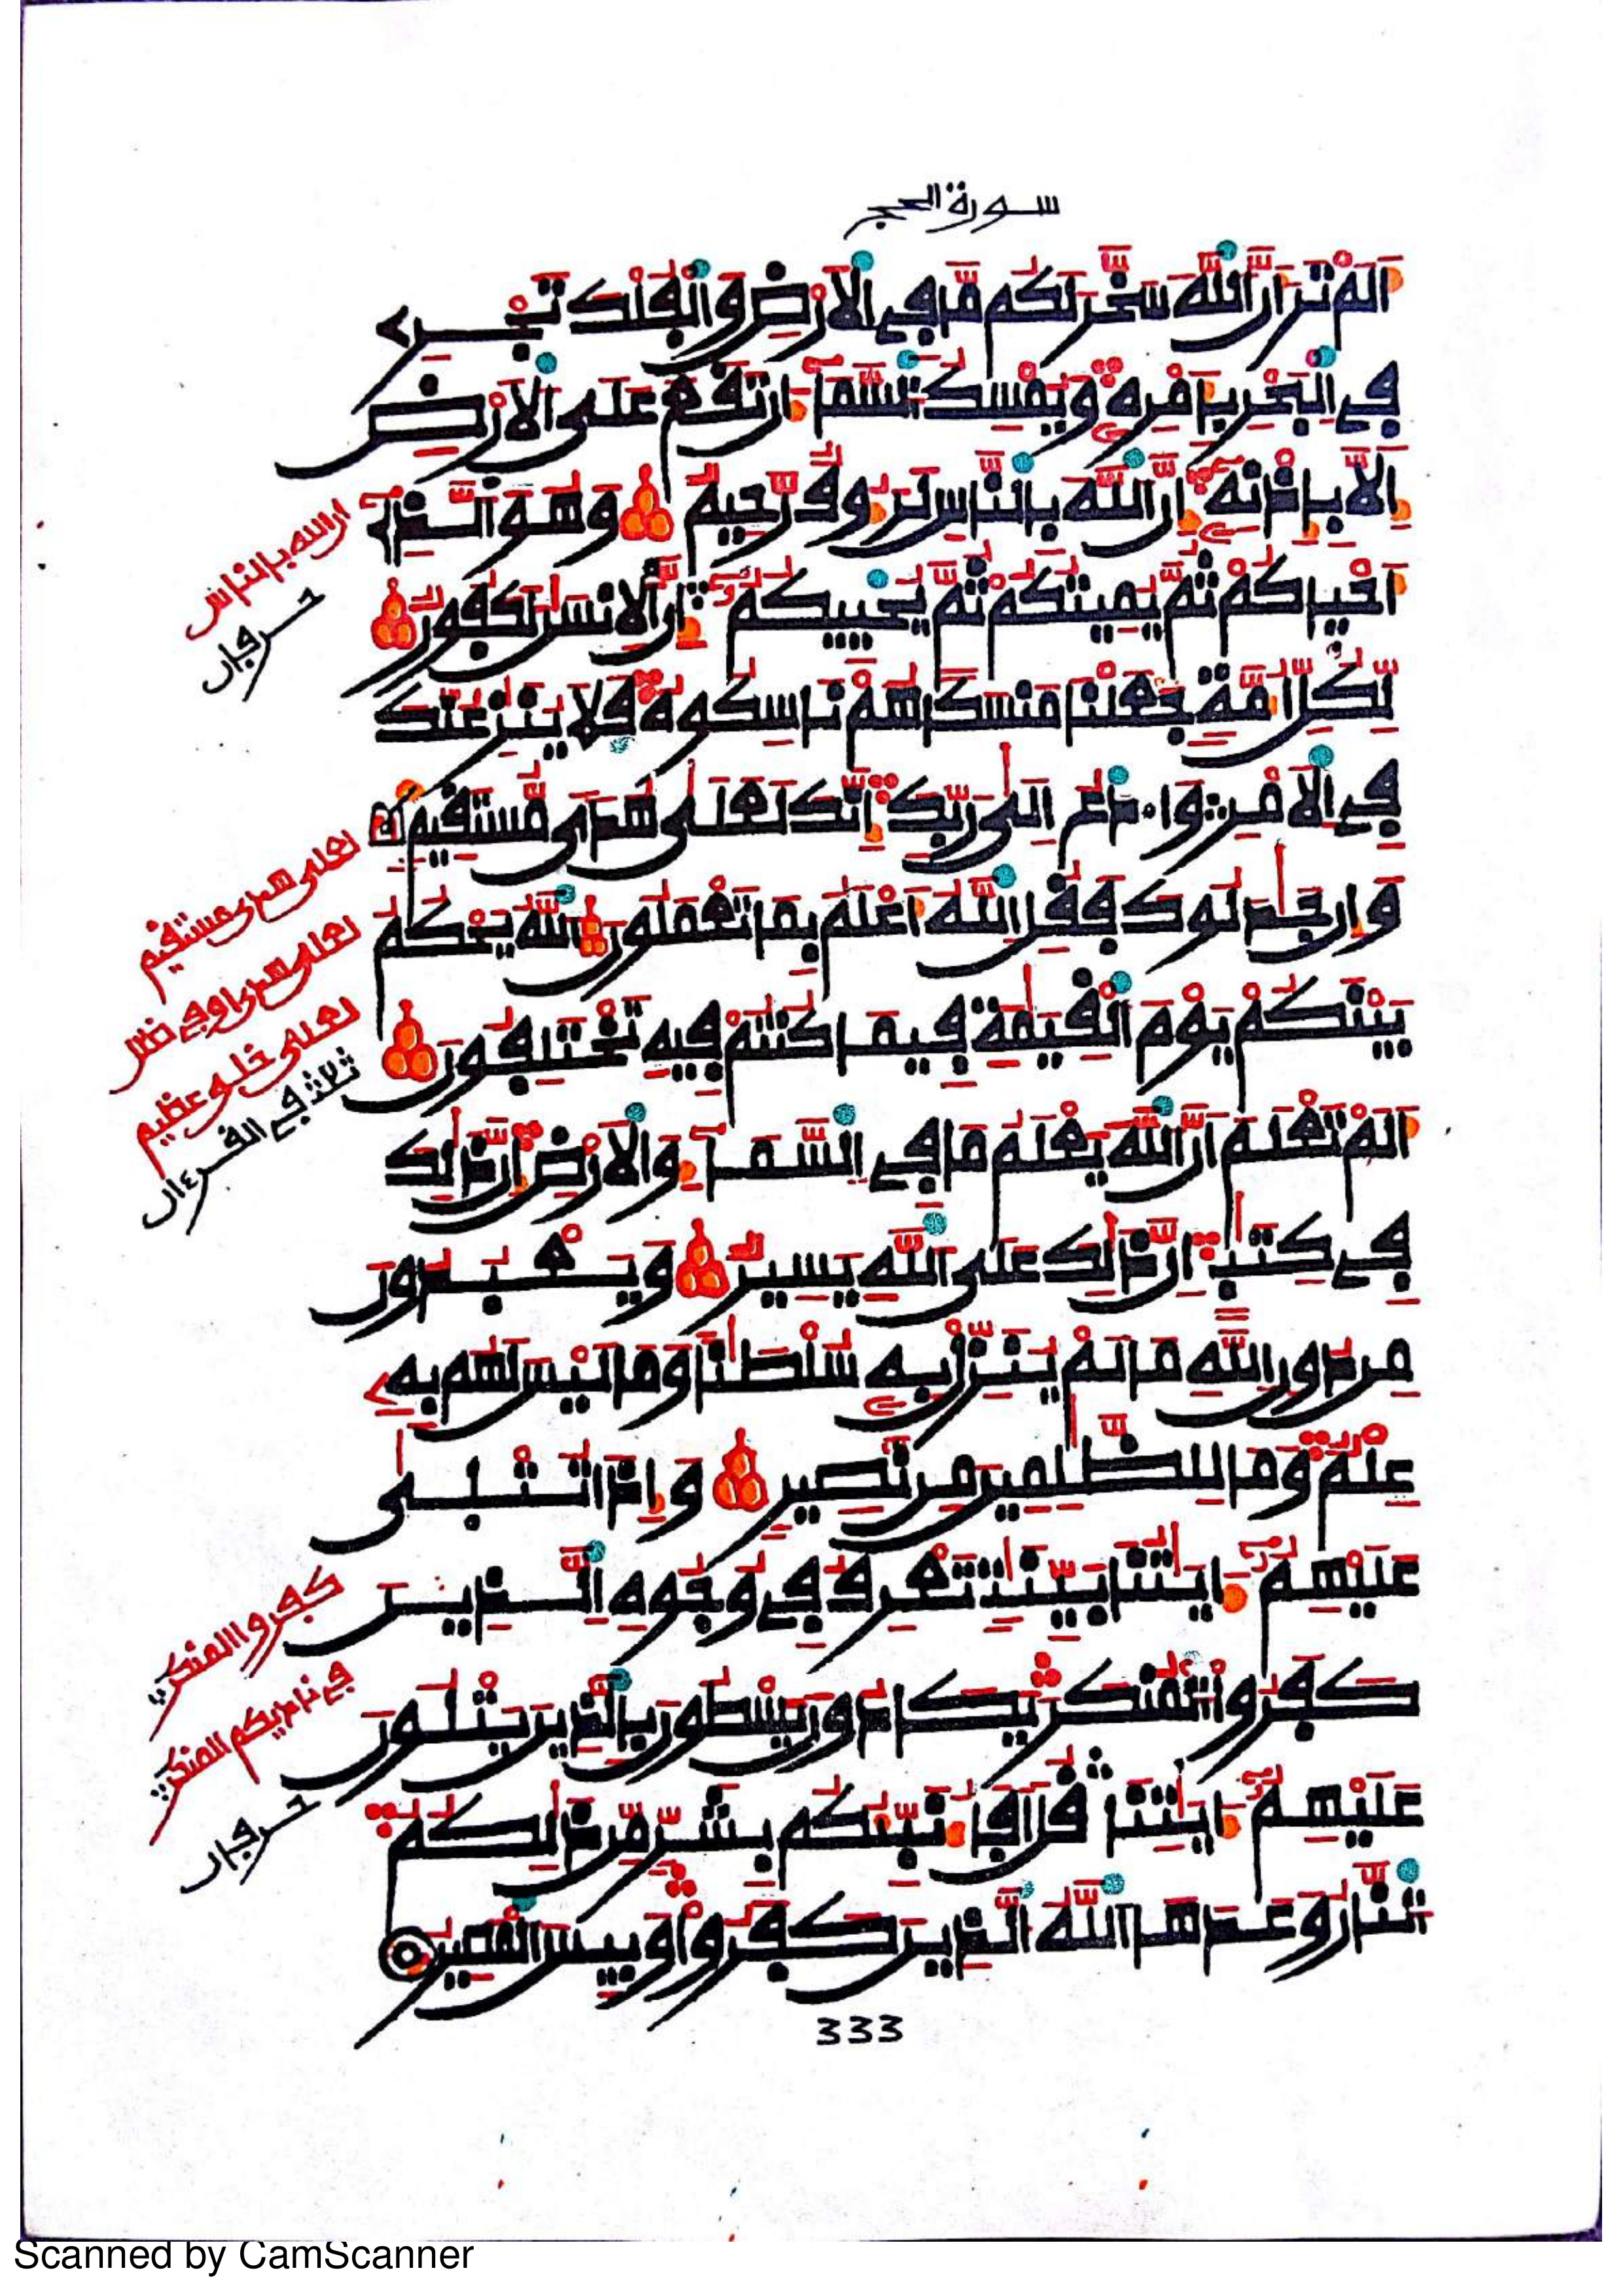 سورة الحج
اَلَمْ تَرَ أَنَّ اَللَّهَ سَخَّرَ لَكُم مَّا فِے اِلَارْضِ وَالْفُلْكَ تَجْرِے
فِے اِلْبَحْرِ بِأَمْرِهِۦ وَيُمْسِكُ اُلسَّمَآءَ ان تَقَعَ عَلَى اَلَارْضِ
إِلَّا بِإِذْنِهِۦٓ إِنَّ اَللَّهَ بِالنَّاسِ لَرَءُوفٌ رَّحِيمٌ وَهُوَ اَلَّذِےٓ
أَحْيَاكُمْ ثُمَّ يُمِيتُكُمْ ثُمَّ يُحْيِيكُمُۥٓ إِنَّ اَلِانسَٰنَ لَكَفُورٌ
لِّكُلِّ أُمَّةٍ جَعَلْنَا مَنسَكاً هُمْ نَاسِكُوهُ فَلَا يُنَٰزِعُنَّكَ
فِے اِلَامْرِ وَادْعُ إِلَىٰ رَبِّكَ إِنَّكَ لَعَلَىٰ هُدىً مُّسْتَقِيمٍ
وَإِن جَٰدَلُوكَ فَقُلِ اِللَّهُ أَعْلَمُ بِمَا تَعْمَلُونَ اَللَّهُ يَحْكُمُ
بَيْنَكُمْ يَوْمَ اَلْقِيَٰمَةِ فِيمَا كُنتُمْ فِيهِ تَخْتَلِفُونَ
أَلَمْ تَعْلَمَ اَنَّ اَللَّهَ يَعْلَمُ مَا فِے اِلسَّمَآءِ وَالَارْضِ إِنَّ ذَٰلِكَ
فِے كِتَٰبٍ اِنَّ ذَٰلِكَ عَلَى اَللَّهِ يَسِيرٌ وَيَعْبُدُونَ
مِن دُونِ اِللَّهِ مَا لَمْ يُنَزِّلْ بِهِۦ سُلْطَٰناً وَمَا لَيْسَ لَهُم بِهِۦ
عِلْمٌ وَمَا لِلظَّٰلِمِينَ مِن نَّصِيرٍ وَإِذَا تُتْلَىٰ
عَلَيْهِمُۥٓ ءَايَٰتُنَا بَيِّنَٰتٍ تَعْرِفُ فِے وُجُوهِ اِلَّذِينَ
كَفَرُوا اُلْمُنكَرَ يَكَادُونَ يَسْطُونَ بِالَّذِينَ يَتْلُونَ
عَلَيْهِمُۥٓ ءَايَٰتِنَا قُلَ اَفَأُنَبِّئُكُم بِشَرٍّ مِّن ذَٰلِكُمُ
اُلنَّارُ وَعَدَهَا اَللَّهُ اُلَّذِينَ كَفَرُوا وَبِيسَ اَلْمَصِيرُ
ان الله بالناس
حرفان
لعلى هدى مستقيم
لعلى هدى او في ضلل
لعلى خلق عظيم
ثلاث في القرءان
كفروا المنكر
في ناديكم المنكر
حرفان
333
Scanned by CamScanner